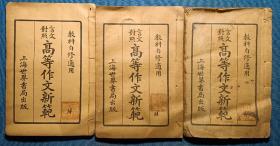 教科自修適用
言文對照
高等作文新範
上海世界書局出版
教科自修適用
言文對照
高等作文新範
上海世界書局出版
教科自修適用
言文對照
高等作文新範
上海世界書局出版